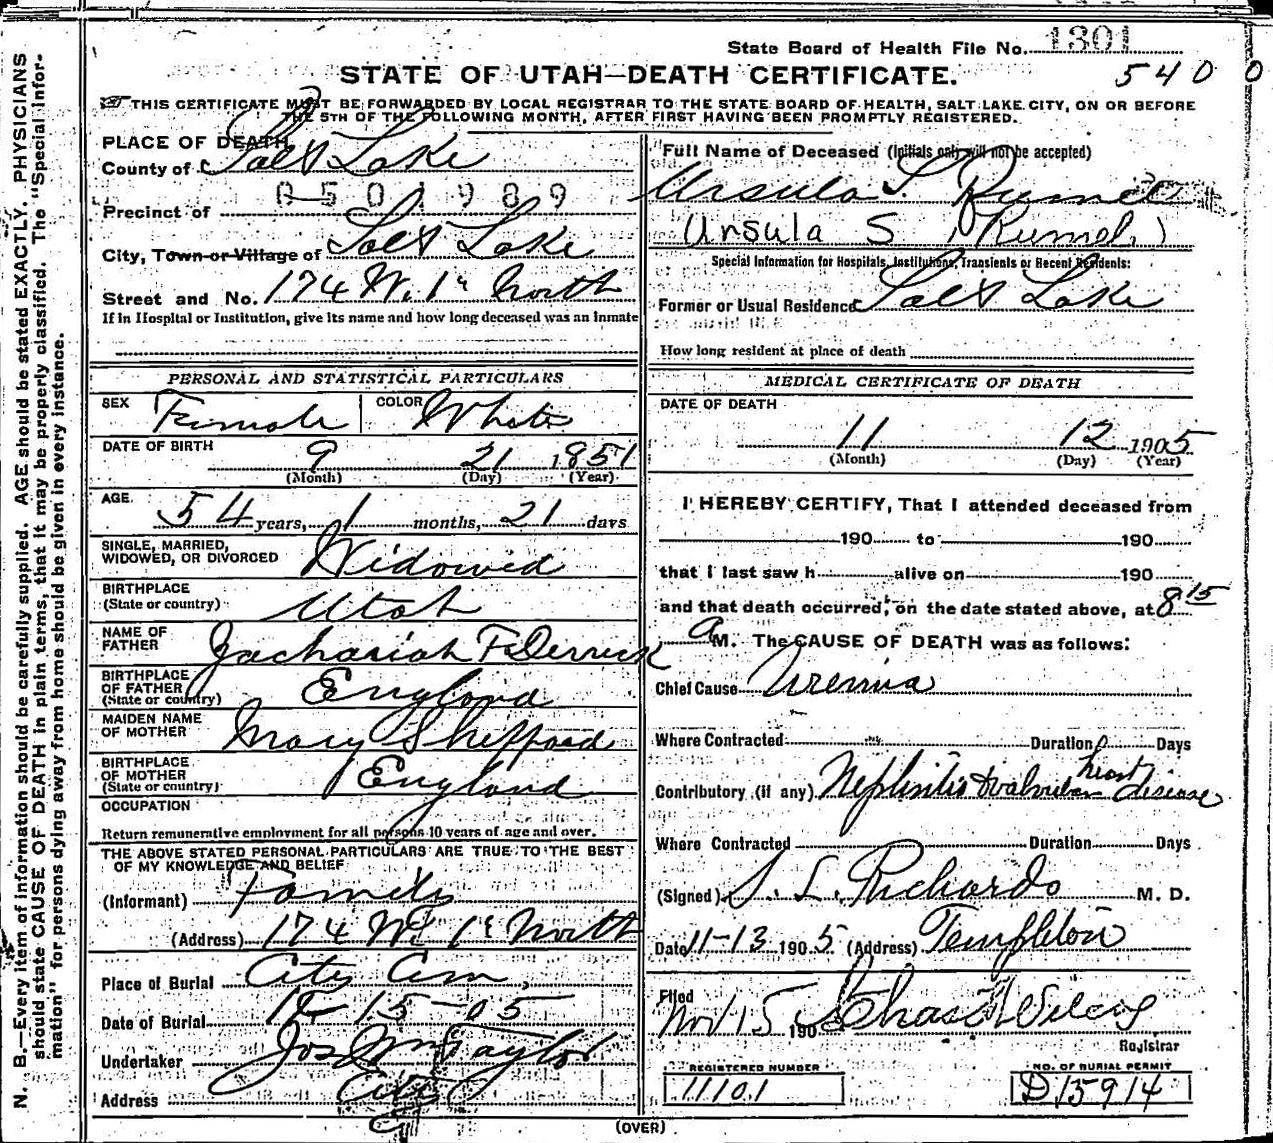 State Board of Health File No. 1301
5400
STATE OF UTAH—DEATH CERTIFICATE.
THIS CERTIFICATE MUST BE FORWARDED BY LOCAL REGISTRAR TO THE STATE BOARD OF HEALTH, SALT LAKE CITY, ON OR BEFORE
THE 5TH OF THE FOLLOWING MONTH, AFTER FIRST HAVING BEEN PROMPTLY REGISTERED.
PLACE OF DEATH
County of Salt Lake
0501989
Precinct of
City, Town or Village of Salt Lake
Street and No. 174 W. 1st North
If in Hospital or Institution, give its name and how long deceased was an inmate
PERSONAL AND STATISTICAL PARTICULARS
SEX Female COLOR White
DATE OF BIRTH
9 21 1851
(Month) (Day) (Year)
AGE
54 years, 1 months, 21 days
SINGLE, MARRIED,
WIDOWED, OR DIVORCED Widowed
BIRTHPLACE
(State or country) Utah
NAME OF
FATHER Zachariah F Derrick
BIRTHPLACE
OF FATHER
(State or country) England
MAIDEN NAME
OF MOTHER Mary Sheppard
BIRTHPLACE
OF MOTHER
(State or country) England
OCCUPATION
Return remunerative employment for all persons 10 years of age and over.
THE ABOVE STATED PERSONAL PARTICULARS ARE TRUE TO THE BEST
OF MY KNOWLEDGE AND BELIEF
(Informant) Family
(Address) 174 W 1st North
Place of Burial City Cem,
Date of Burial 11-15-05
Undertaker Jos Wm Taylor
Address City
Full Name of Deceased (Initials only will not be accepted)
Ursula S. Rumel
(Ursula S Rumel)
Special Information for Hospitals, Institutions, Transients or Recent Residents:
Former or Usual Residence Salt Lake
How long resident at place of death
MEDICAL CERTIFICATE OF DEATH
DATE OF DEATH
11 12 1905
(Month) (Day) (Year)
I HEREBY CERTIFY, That I attended deceased from
190 to 190
that I last saw h alive on 190
and that death occurred, on the date stated above, at 8 15
a M. The CAUSE OF DEATH was as follows:
Chief Cause Uremia
Where Contracted Duration Days
Contributory (if any) Nephritis & valvular heart disease
Where Contracted Duration Days
(Signed) S. L. Richards M. D.
Date 11-13 1905 (Address) Templeton
Filed
Nov 15 190 Chas Wilcox
Registrar
REGISTERED NUMBER
11101
NO. OF BURIAL PERMIT
D 15914
(OVER)
N. B.—Every item of information should be carefully supplied. AGE should be stated EXACTLY. PHYSICIANS
should state CAUSE OF DEATH in plain terms, that it may be properly classified. The "Special Infor-
mation" for persons dying away from home should be given in every instance.